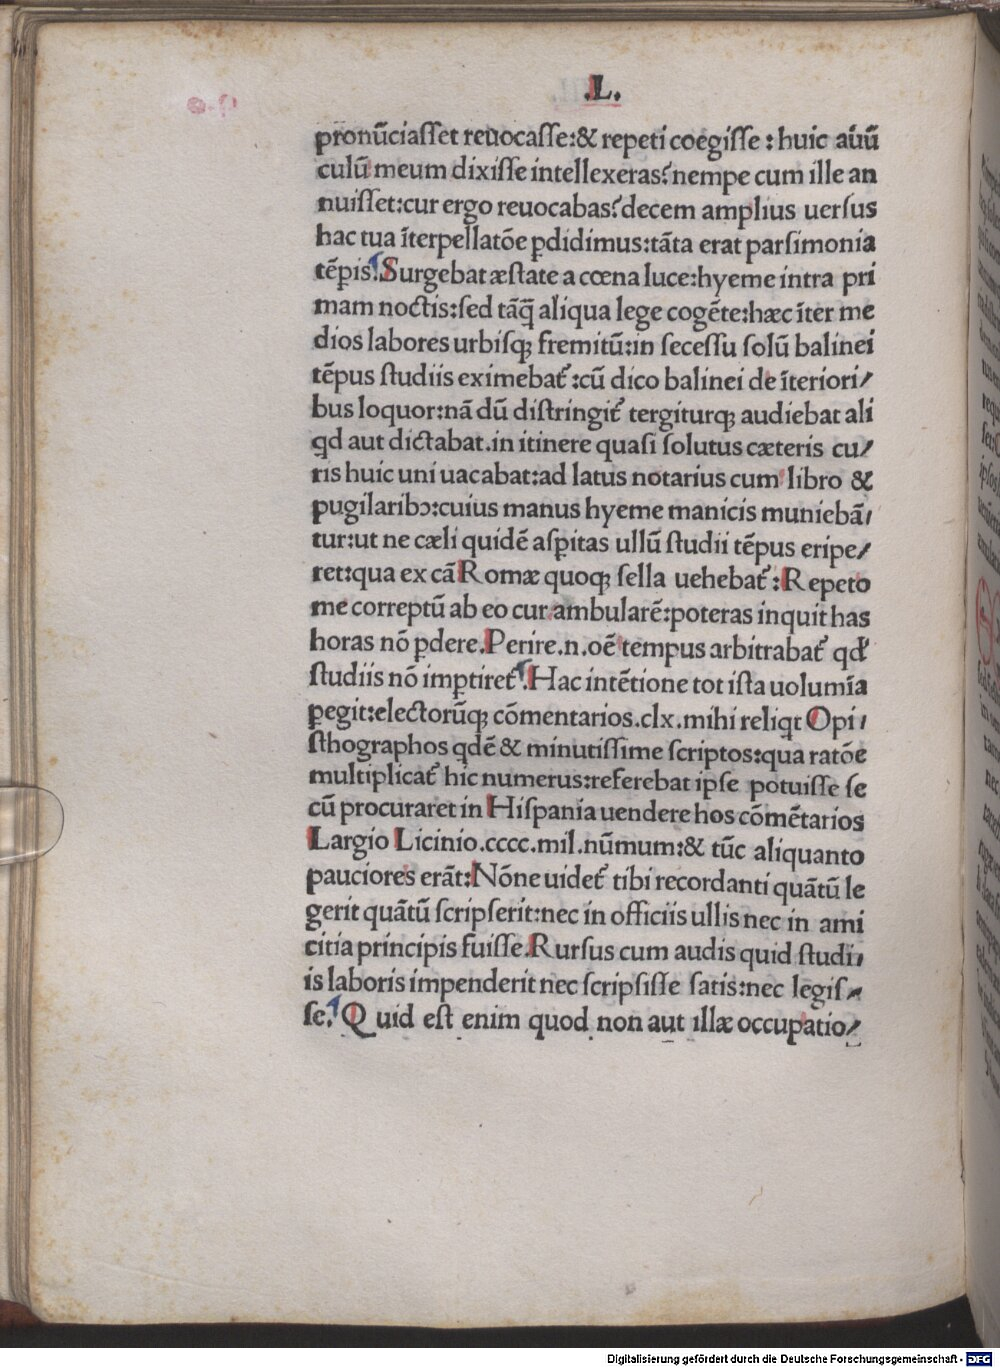 .L.
pronūciaſſet reuocaſſe:& repeti coegiſſe : huic auū
culū meum dixiſſe intellexeras? nempe cum ille an
nuiſſet:cur ergo reuocabas? decem amplius uerſus
hac tua īterpellatōe ꝑdidimus:tāta erat parſimonia
tēꝑis. Surgebat æſtate a cœna luce:hyeme intra pri
mam noctis:ſed tāq̄ aliqua lege cogēte:hæc īter me
dios labores urbiſqꝫ fremitū:in ſeceſſu ſolū balinei
tēpus ſtudiis eximebat᷑ :cū dico balinei de īteriori/
bus loquor:nā dū diſtringit᷑ tergiturqꝫ audiebat ali
qd aut dictabat.in itinere quaſi ſolutus cæteris cu/
ris huic uni uacabat:ad latus notarius cum libro &
pugilaribꝰ:cuius manus hyeme manicis muniebā/
tur:ut ne cæli quidē aſꝑitas ullū ſtudii tēpus eripe/
ret:qua ex cā Romæ quoqꝫ ſella uehebat᷑ : Repeto
me correptū ab eo cur ambularē:poteras inquit has
horas nō ꝑdere. Perire.n.oē tempus arbitrabat᷑ qd᷑
ſtudiis nō imꝑtiret᷑. Hac intētione tot iſta uolumīa
ꝑegit:electorūqꝫ cōmentarios.clx.mihi reliqt Opi/
ſthographos qdē & minutiſſime ſcriptos:qua ratōe
multiplicat᷑ hic numerus:referebat ipſe potuiſſe ſe
cū procuraret in Hiſpania uendere hos cōmētarios
Largio Licinio.cccc.mil.nūmum:& tūc aliquanto
pauciores erāt: Nōne uidet᷑ tibi recordanti quātū le
gerit quātū ſcripſerit:nec in officiis ullis nec in ami
citia principis fuiſſe. Rurſus cum audis quid ſtudi/
is laboris impenderit nec ſcripſiſſe ſatis:nec legiſ/
ſe. Quid eſt enim quod non aut illæ occupatio/
Digitalisierung gefördert durch die Deutsche Forschungsgemeinschaft - DFG